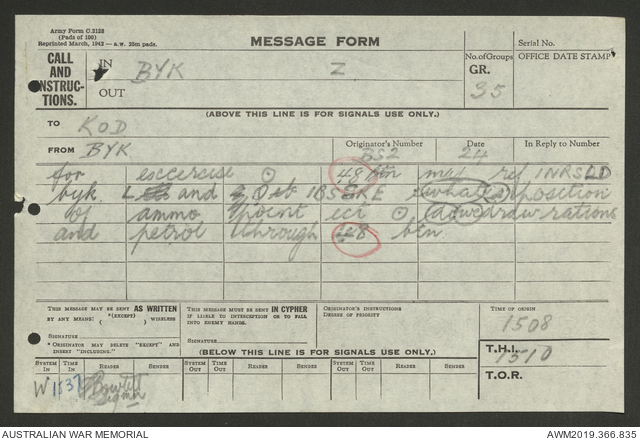 Army Form C.2128
(Pads of 100)
Reprinted March, 1942 — a.w. 20m pads.
MESSAGE FORM
Serial No.
CALL AND INSTRUCTIONS.
IN BYK Z
OUT
No. of Groups
GR. 35
OFFICE DATE STAMP
(ABOVE THIS LINE IS FOR SIGNALS USE ONLY.)
TO KOD
FROM BYK
Originator's Number BS2
Date 24
In Reply to Number
for esccercise 48 btn ref
byk and what is position
of ammo point draw rations
and petrol through 48 btn
THIS MESSAGE MAY BE SENT AS WRITTEN
BY ANY MEANS: *(EXCEPT) ( ) WIRELESS
SIGNATURE
* ORIGINATOR MAY DELETE "EXCEPT" AND INSERT "INCLUDING."
THIS MESSAGE MUST BE SENT IN CYPHER
IF LIABLE TO INTERCEPTION OR TO FALL INTO ENEMY HANDS.
SIGNATURE
ORIGINATOR'S INSTRUCTIONS
DEGREE OF PRIORITY
TIME OF ORIGIN
1508
(BELOW THIS LINE IS FOR SIGNALS USE ONLY.)
T.H.I. 1510
T.O.R.
SYSTEM IN TIME IN READER SENDER SYSTEM OUT TIME OUT READER SENDER SYSTEM OUT TIME OUT READER SENDER
W 1537
AUSTRALIAN WAR MEMORIAL
AWM2019.366.835